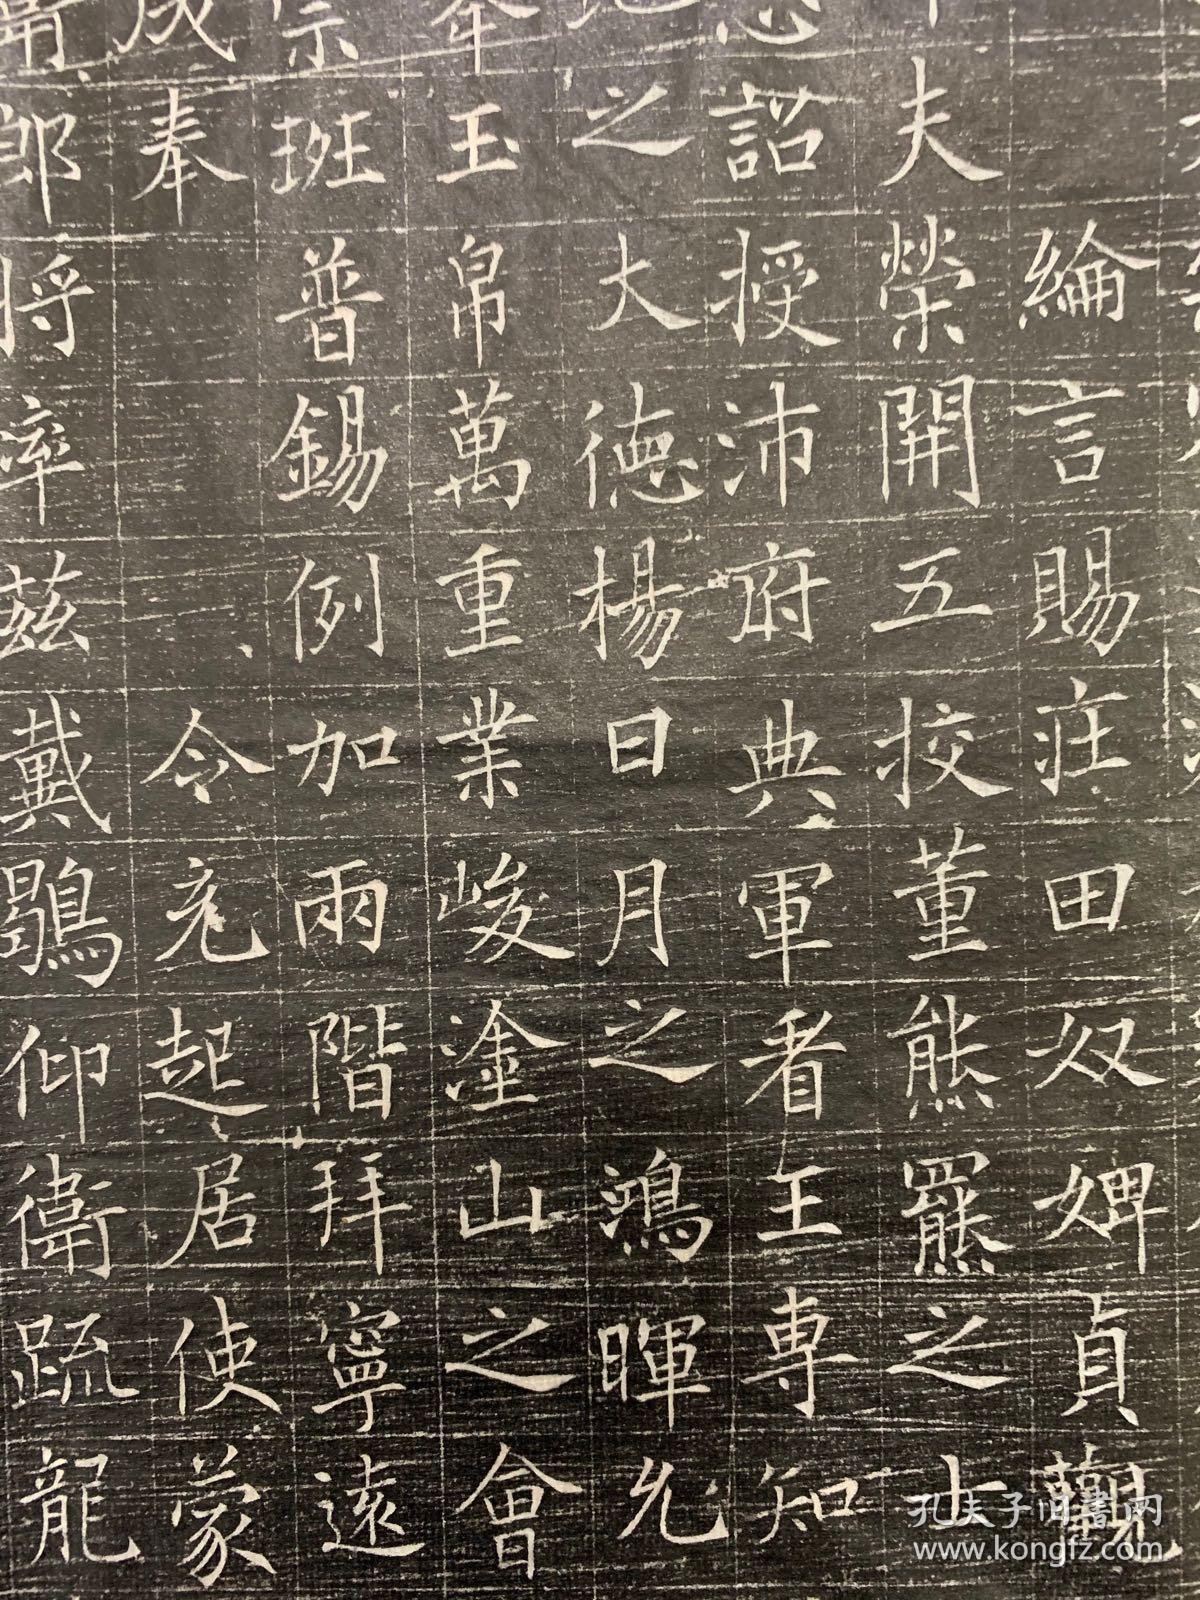 綸言賜莊田奴婢貞觀
夫榮開五校董熊羆之士
詔授沛府典軍者王專知
之大德楊日月之鴻暉允
玉帛萬重業峻塗山之會
班普錫例加兩階拜寧遠
奉令充起居使蒙
郎將率茲戴鶚仰衛疏龍
孔夫子旧书网
www.kongfz.com